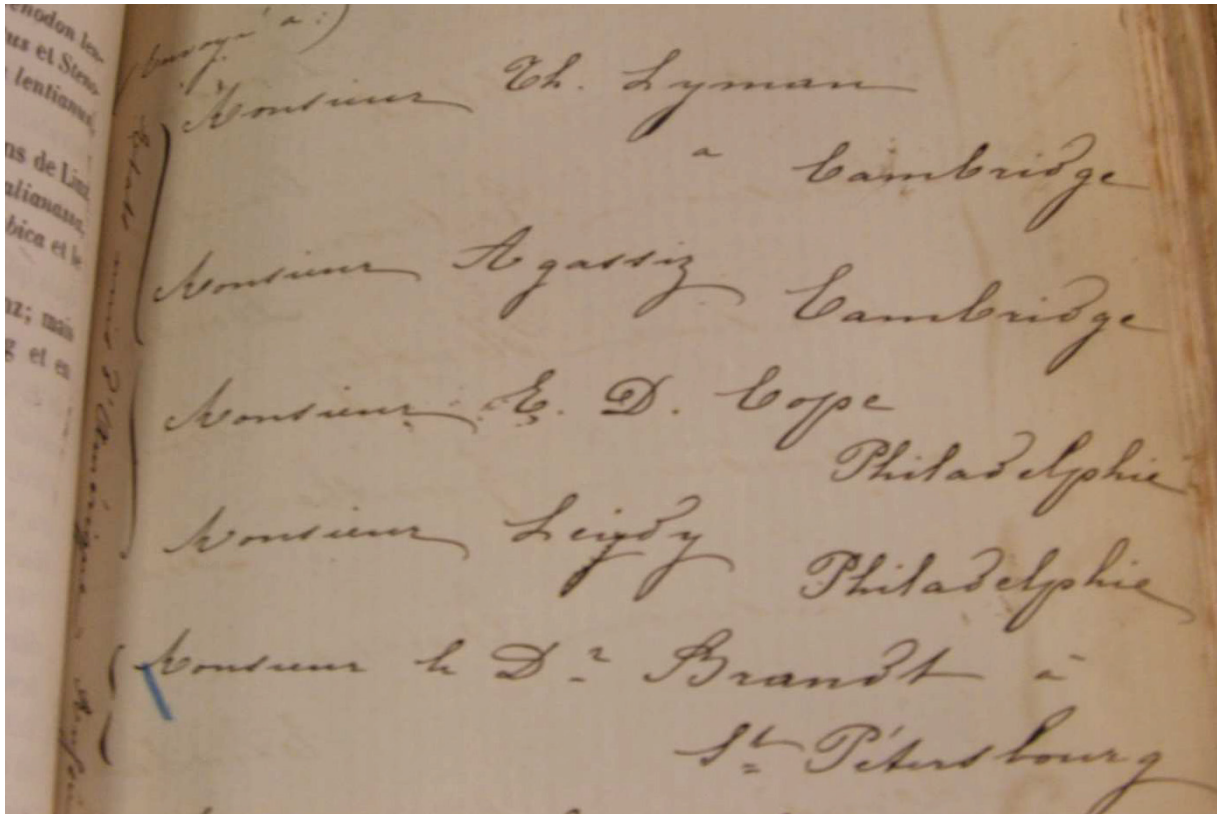 enodon len-
us et Steno-
lentianus,
ns de Linz
alianassa,
bica et le
nz; mais
g et en
(Envoyé à:)
Monsieur Th. Lyman
a Cambridge
Monsieur Agassiz
Cambridge
Monsieur E. D. Cope
Philadelphie
Monsieur Leijdy
Philadelphie
Monsieur le Dr Brandt à
St Pétersbourg
Etats unis d'Amérique